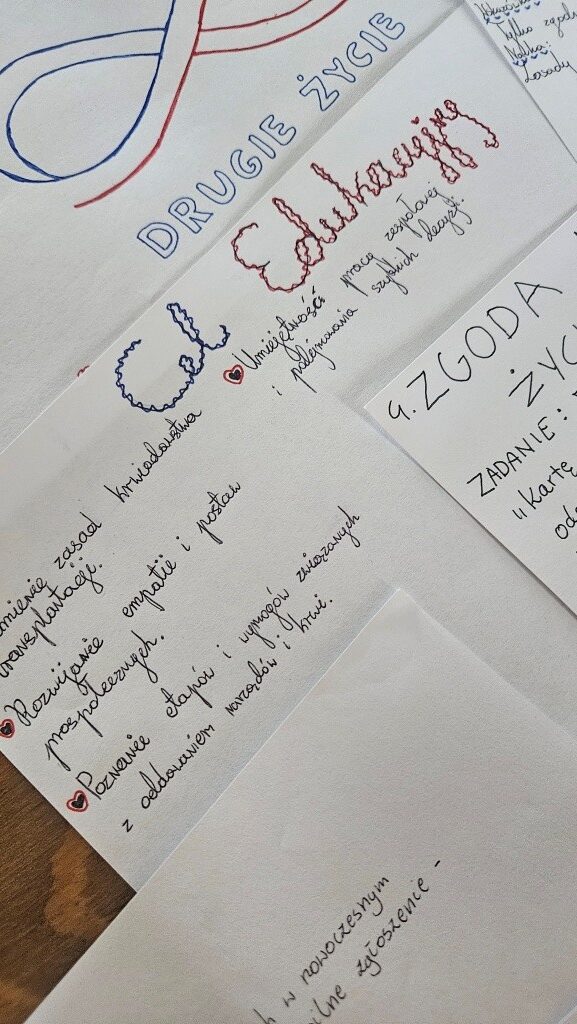 DRUGIE ŻYCIE
Cel Edukacyjny
Umiejętność pracy zespołowej
i podejmowania szybkich decyzji.
zasad krwiodawstwa
transplantacji.
Rozwijanie empatii i postaw
prospołecznych.
Poznanie etapów i wymogów związanych
z oddawaniem narządów i krwi.
Tylko
Zasady
4. ZGODA
ZADANIE:
"Kartę
w nowoczesnym
zgłoszenie -